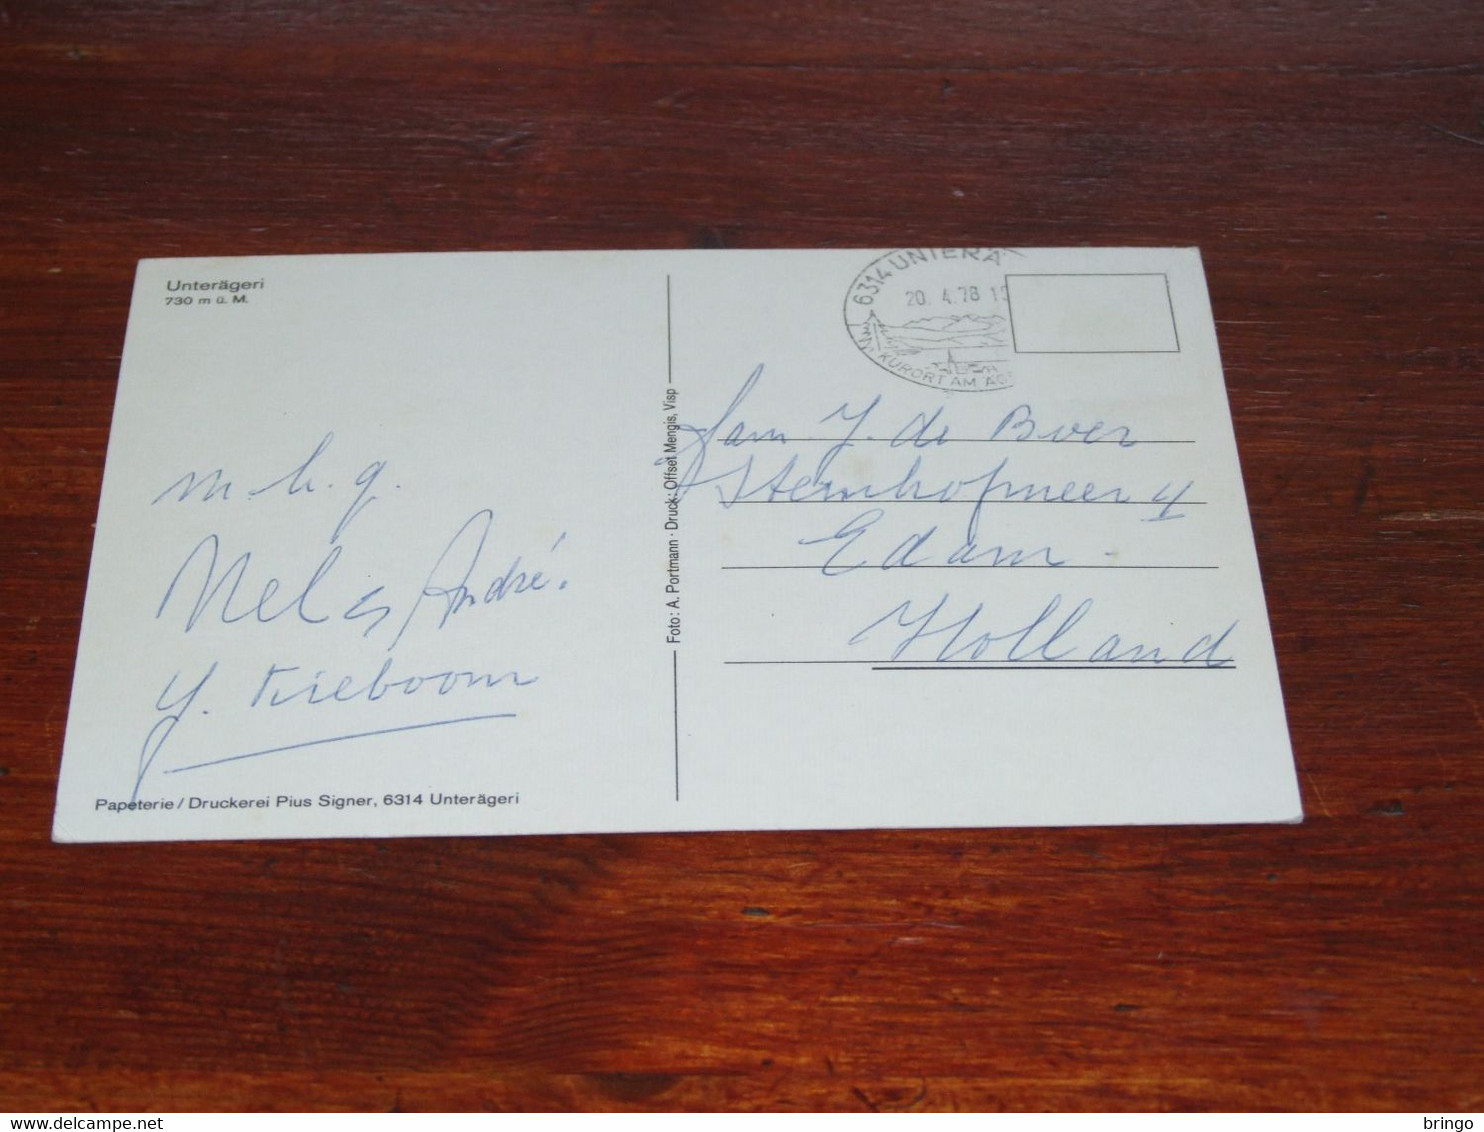 Unterägeri
730 m ü. M.
6314 UNTERÄ
20. 4.78
KURORT AM ÄG
m. h. g.
Nel & André.
Papeterie/Druckerei Pius Signer, 6314 Unterägeri
Foto: A. Portmann · Druck: Offset Mengis, Visp
Fam. J. de Boer
Edam.
Holland
delcampe.net
bringo